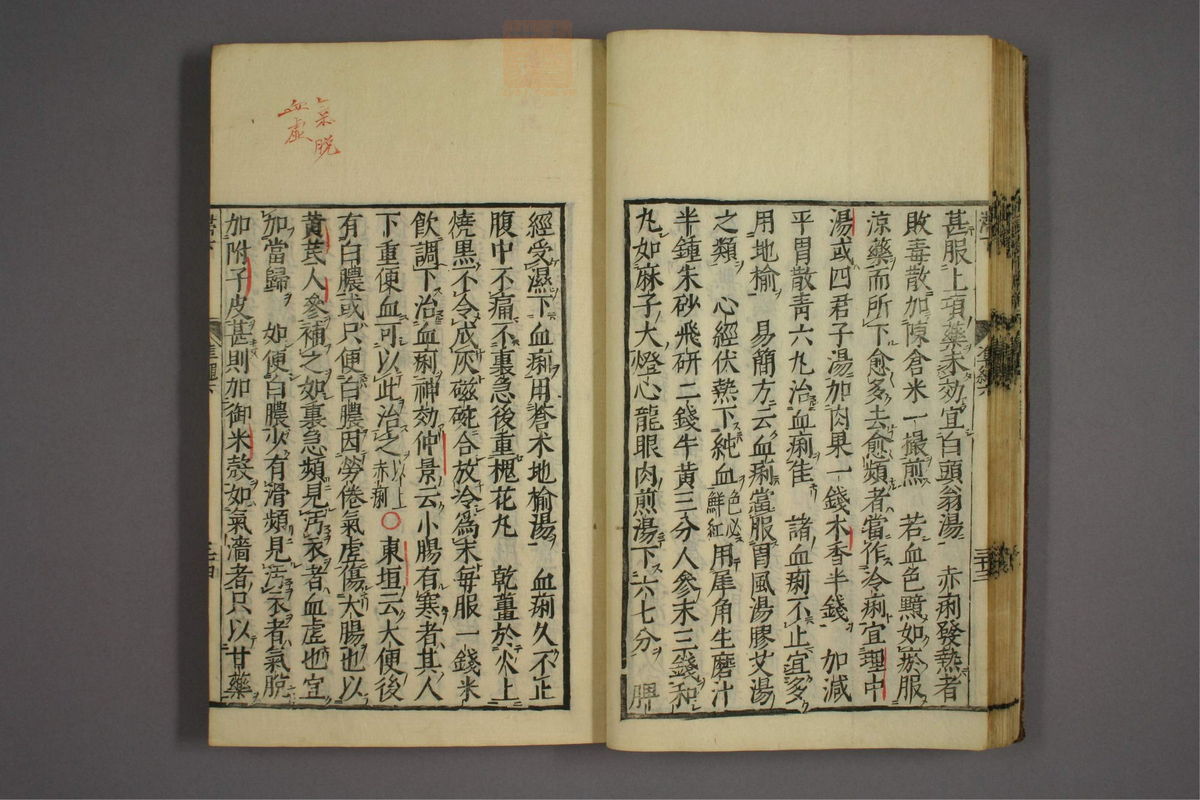 甚服上項藥未効宜白頭翁湯 赤痢發熱者
敗毒散加陳倉米一撮煎 若血色黯如瘀服
涼藥而所下愈多去愈頻者當作冷痢宜理中
湯或四君子湯加肉果一錢木香半錢 加減
平胃散青六丸治血痢佳 諸血痢不止宜多
用地榆 易簡方云血痢當服胃風湯膠艾湯
之類 心經伏熱下純血色必鮮紅用犀角生磨汁
半鍾朱砂飛研二錢牛黃三分人參末三錢和
丸如麻子大燈心龍眼肉煎湯下六七分 脾
經受濕下血痢用蒼朮地榆湯 血痢久不止
腹中不痛不裏急後重槐花丸 乾薑於火上
燒黑不令成灰磁碗合放冷爲末每服一錢米
飲調下治血痢神効仲景云小腸有寒者其人
下重便血可以此治之以上赤痢○東垣云大便後
有白膿或只便白膿因勞倦氣虛傷大腸也以
黃芪人參補之如裏急頻見汚衣者血虛也宜
加當歸 如便白膿少有滑頻見汚衣者氣脫
加附子皮甚則加御米殼如氣濇者只以甘藥
氣脫
血虛